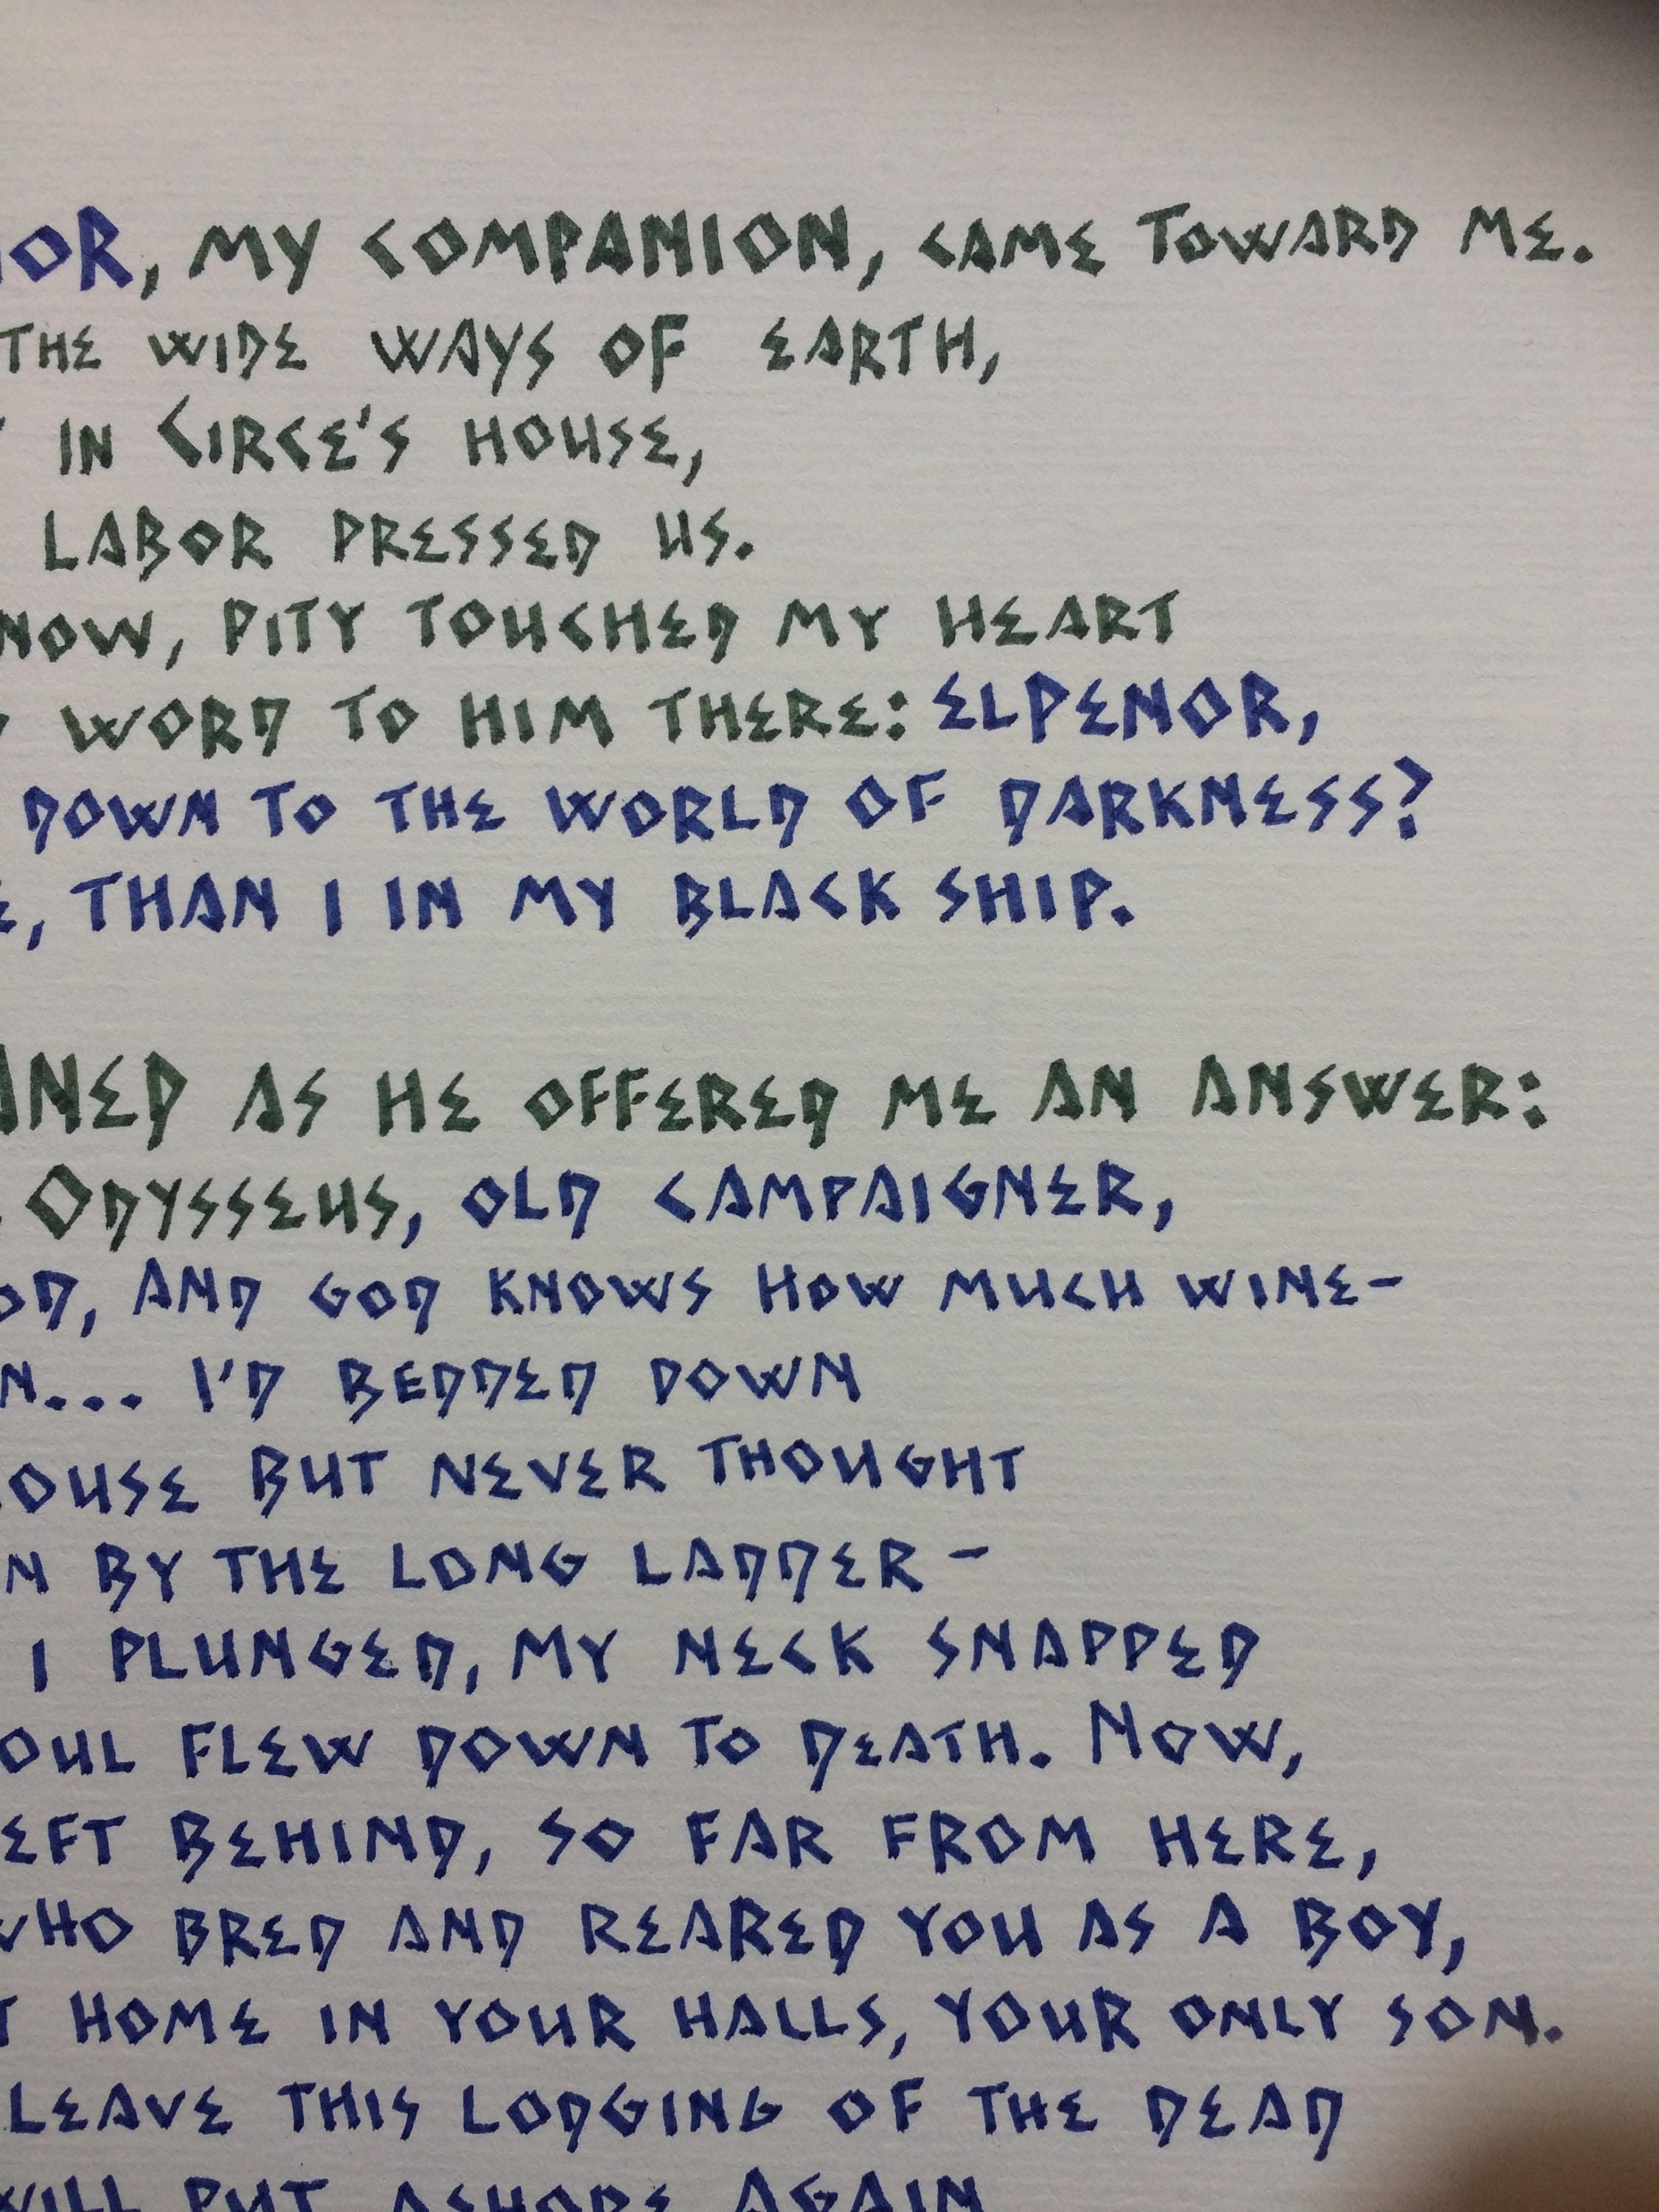 OR, MY COMPANION, CAME TOWARD ME.
THE WIDE WAYS OF EARTH,
IN CIRCE'S HOUSE,
LABOR PRESSED US.
NOW, PITY TOUCHED MY HEART
WORD TO HIM THERE: ELPENOR,
DOWN TO THE WORLD OF DARKNESS?
, THAN I IN MY BLACK SHIP.
NED AS HE OFFERED ME AN ANSWER:
ODYSSEUS, OLD CAMPAIGNER,
OD, AND GOD KNOWS HOW MUCH WINE-
N... I'D BEDDED DOWN
OUSE BUT NEVER THOUGHT
N BY THE LONG LADDER -
I PLUNGED, MY NECK SNAPPED
OUL FLEW DOWN TO DEATH. NOW,
EFT BEHIND, SO FAR FROM HERE,
WHO BRED AND REARED YOU AS A BOY,
T HOME IN YOUR HALLS, YOUR ONLY SON.
LEAVE THIS LODGING OF THE DEAD
WILL PUT ASHORE AGAIN